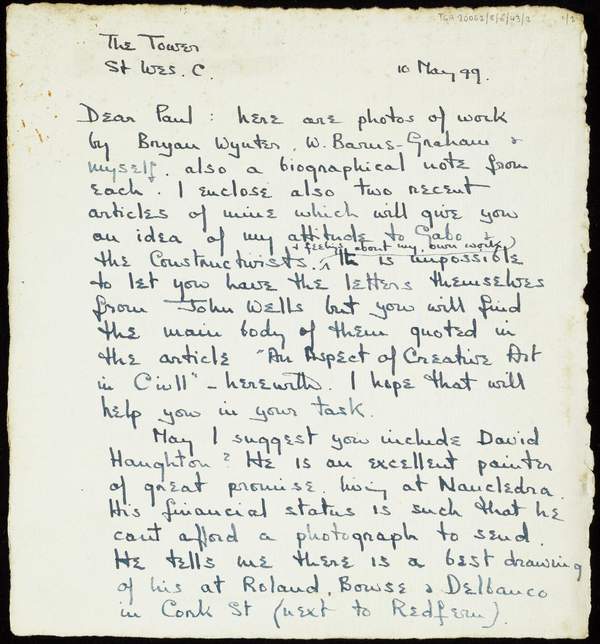 TGA 20062/2/6/43/2 1/2
The Tower
St Ives. C.
10 May 49.
Dear Paul : here are photos of work
by Bryan Wynter, W. Barns-Graham &
myself, also a biographical note from
each. I enclose also two recent
articles of mine which will give you
an idea of my attitude to Gabo &
& feelings about my own work)
the Constructivists. It is impossible
to let you have the letters themselves
from John Wells but you will find
the main body of them quoted in
the article "An Aspect of Creative Art
in C'wll" - herewith. I hope that will
help you in your task.
May I suggest you include David
Haughton? He is an excellent painter
of great promise, living at Nancledra.
His financial status is such that he
cant afford a photograph to send.
He tells me there is a best drawing
of his at Roland, Bowse & Delbanco
in Cork St (next to Redfern).